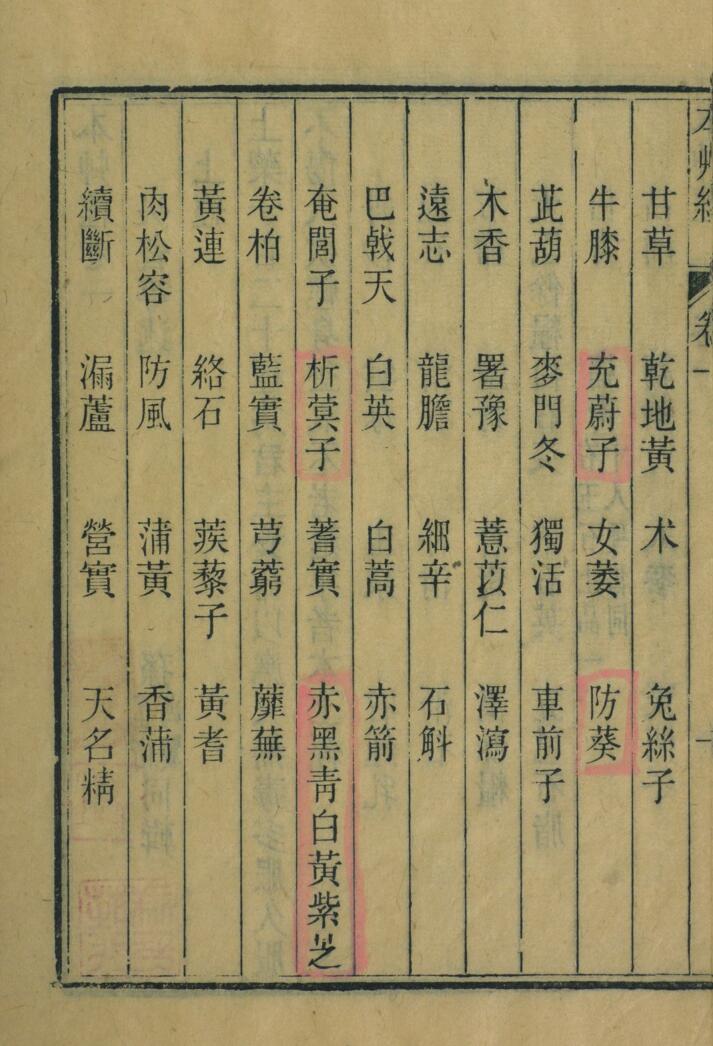 本艸經 卷一 一
甘草 乾地黃 朮 兔絲子
牛膝 充蔚子 女萎 防葵
茈葫 麥門冬 獨活 車前子
木香 署豫 薏苡仁 澤瀉
遠志 龍膽 細辛 石斛
巴戟天 白英 白蒿 赤箭
奄閭子 析蓂子 蓍實 赤黑青白黃紫芝
卷柏 藍實 芎藭 蘼蕪
黃連 絡石 蒺藜子 黃耆
肉松容 防風 蒲黃 香蒲
續斷 漏蘆 營實 天名精